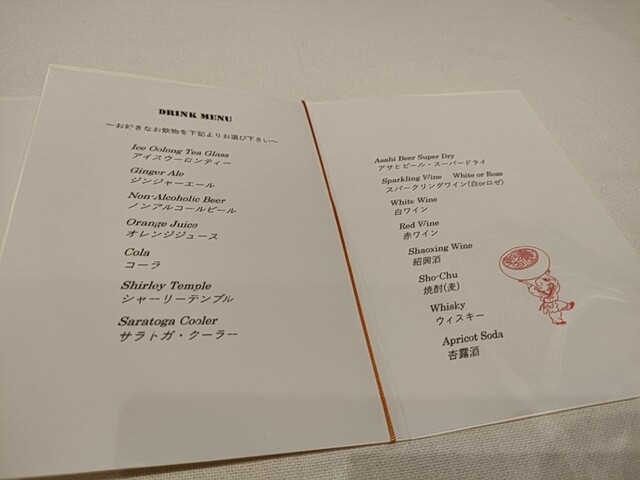 DRINK MENU
～お好きなお飲物を下記よりお選び下さい～
Ice Oolong Tea Glass
アイスウーロンティー
Ginger Ale
ジンジャーエール
Non-Alcoholic Beer
ノンアルコールビール
Orange Juice
オレンジジュース
Cola
コーラ
Shirley Temple
シャーリーテンプル
Saratoga Cooler
サラトガ・クーラー
Asahi Beer Super Dry
アサヒビール・スーパードライ
Sparkling Wine White or Rose
スパークリングワイン(白orロゼ)
White Wine
白ワイン
Red Wine
赤ワイン
Shaoxing Wine
紹興酒
Sho-Chu
焼酎(麦)
Whisky
ウィスキー
Apricot Soda
杏露酒